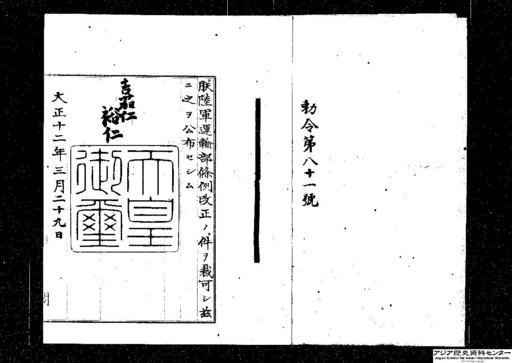 勅令第八十一號
朕陸軍運輸部條例改正ノ件ヲ裁可シ茲
ニ之ヲ公布セシム
嘉仁
裕仁
天皇御璽
大正十二年三月二十九日
アジア歴史資料センター
Japan Center for Asian Historical Records